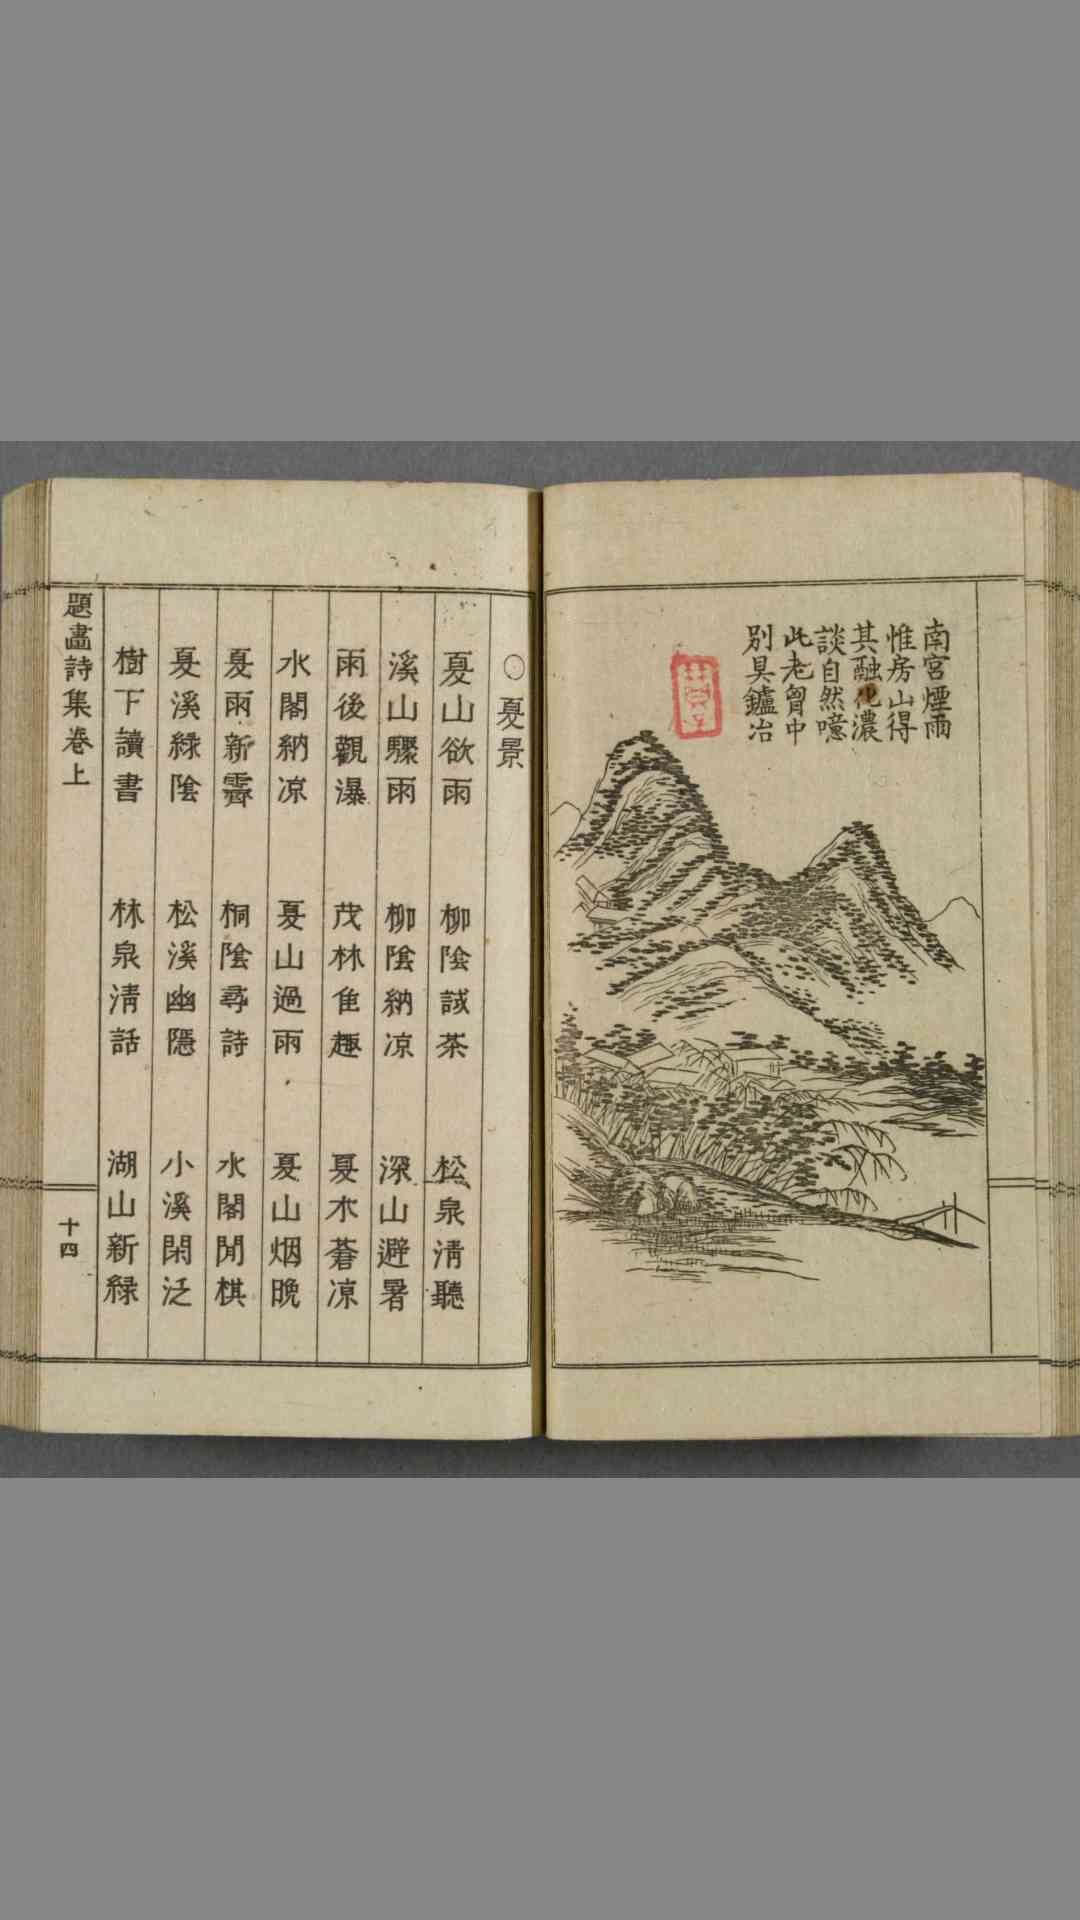 南宮煙雨
惟房山得
其融化濃
談自然噫
此老胷中
別具鑪冶
○夏景
夏山欲雨 柳陰試茶 松泉清聽
溪山驟雨 柳陰納凉 深山避暑
雨後觀瀑 茂林佳趣 夏木蒼凉
水閣納凉 夏山過雨 夏山烟晚
夏雨新霽 桐陰尋詩 水閣閒棋
夏溪綠陰 松溪幽隱 小溪閑泛
樹下讀書 林泉清話 湖山新綠
題畵詩集卷上
十四